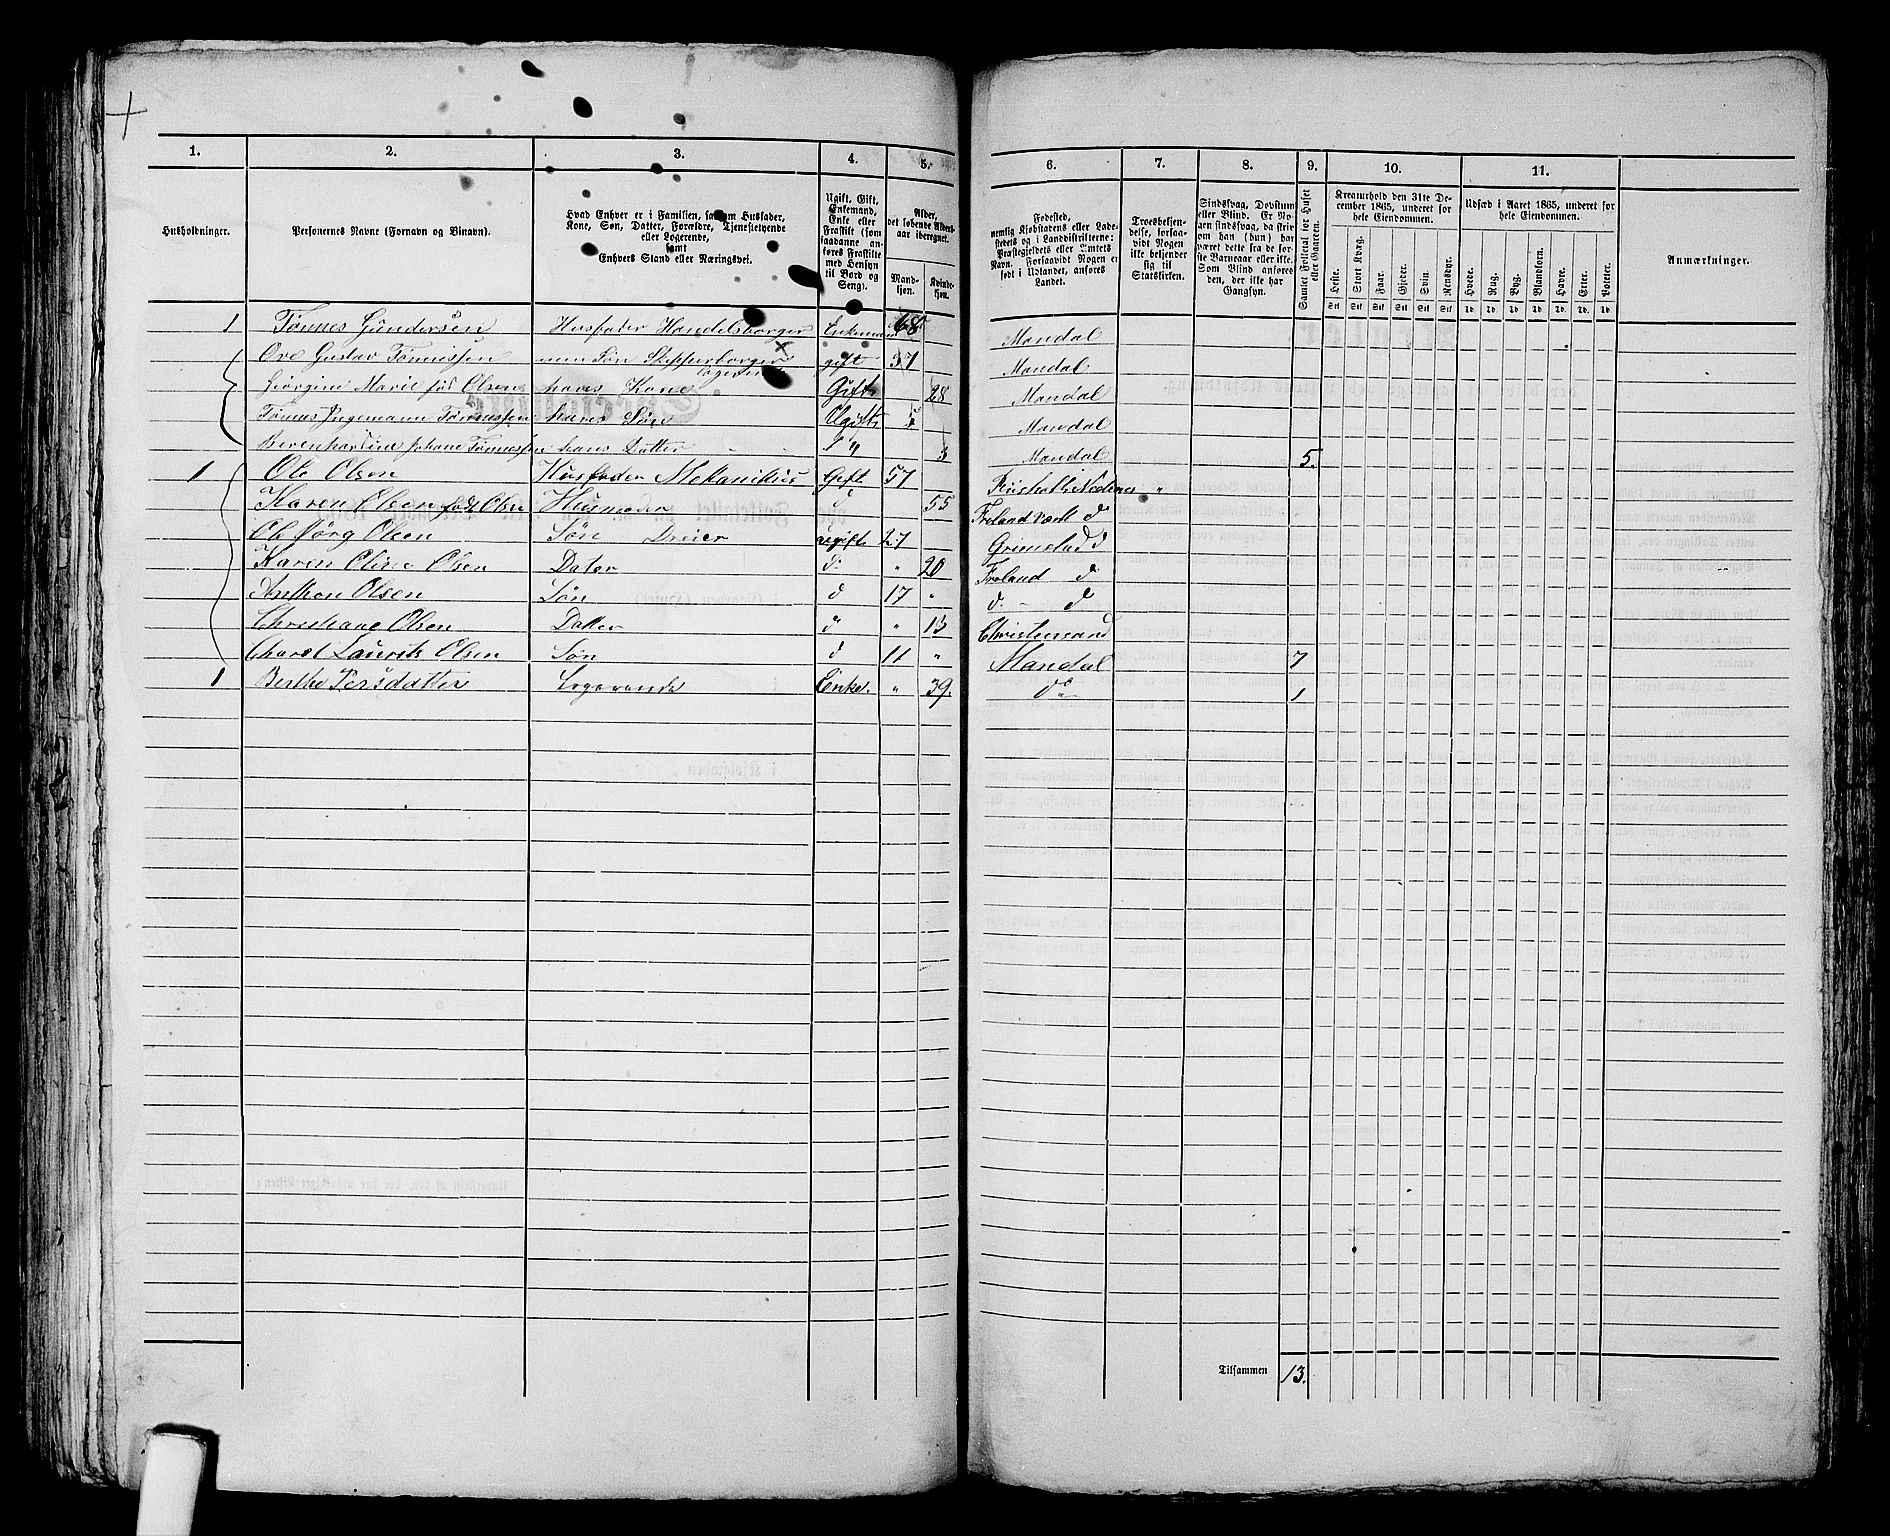 1. 2. 3. 4. 5. 6. 7. 8. 9. 10. 11.
Husholdninger.
Personernes Navne (Fornavn og Binavn).
Hvad Enhver er i Familien, saasom Husfader,
Kone, Søn, Datter, Forældre, Tjenestetyende
eller Logerende,
samt
Enhvers Stand eller Næringsvei.
Ugift, Gift,
Enkemand,
Enke eller
Fraskilt (som
saadanne an-
føres Fraskilte
med Hensyn
til Bord og
Seng).
Alder,
det løbende Alders-
aar iberegnet.
Mand-
kjøn.
Kvinde-
kjøn.
Fødested,
nemlig Kjøbstadens eller Lade-
stedets og i Landdistrikterne:
Præstegjeldets eller Amtets
Navn. Forsaavidt Nogen er
født i Udlandet, anføres
Landet.
Troesbekjen-
delse, forsaa-
vidt Nogen
ikke bekjender
sig til
Statskirken.
Sindssvag, Døvstum
eller Blind. Er No-
gen sindssvag, da skriv
om han (hun) har
været dette fra de før-
ste Barneaar eller ikke.
Som Blind anføres
den, der ikke har
Gangsyn.
Samlet Folketal for Huset
eller Gaarden.
Kreaturhold den 31te De-
cember 1865, underet for
hele Eiendommen.
Heste. Stort Kvæg. Faar. Gjeder. Svin. Rensdyr.
Stk Stk Stk Stk Stk Stk
Udsæd i Aaret 1865, underet for
hele Eiendommen.
Hvede. Rug. Byg. Blandkorn. Havre. Erter. Poteter.
Td. Td. Td. Td. Td. Td. Td.
Anmærkninger.
1 Tønnes Gundersen Husfader Handelsborger Enkemand 68 Mandal
Ove Gustav Tønnissen Søn Skipperborger logerende gift 37 Mandal
Marie fød Olsen hans Kone Gift 28 Mandal
Tønnes Ingemann Tønnessen hans Søn Ugift Mandal
Johane Tønnessen hans Datter " 3 Mandal 5.
1 Ole Olsen Husfader Mekanikus Gift 57 "
Karen Olsen født Olsen Husmoder 55 Froland d
Ole Jørg Olsen Søn Dreier ugift 27 Grimstad d
Karen Oline Olsen Dater d " 20 Froland d
Anthon Olsen Søn d 17 " d d
Christiane Olsen Datter d " 13 Christiansand
Laurits Olsen Søn d 11 " Mandal 7
1 Berthe Persdatter Logerende Enke. " 39. do 1
Tilsammen 13.